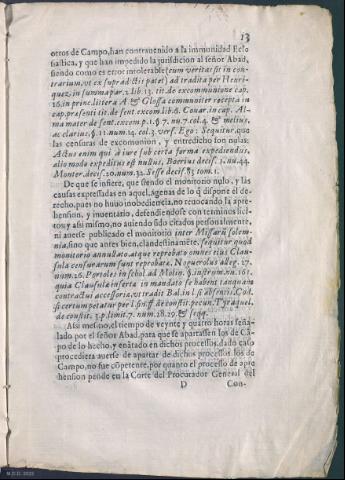 13
otros de Campo, han contrauenido a la immunidad Ecle
siastica, y que han impedido la jurisdicion al señor Abad,
siendo como es error intolerable (cum veritas sit in con-
trarium, vt ex supradictis patet) ad tradita per Henri-
quez, in summa par. 2. lib. 13. tit. de excommunione cap.
16. in princ. littera A & Glossa communiter recepta in
cap. præsenti tit. de sent. excom. lib. 6. Couar. in cap. Al-
ma mater de sent. excom. p. 1. §. 7. nu. 7. col. 4. & melius,
ac clarius, §. 11. num. 14. col. 3. vers. Ego: Sequitur que
las censuras de excomunion, y entredicho son nulas;
Actus enim qui à iure sub certa forma expediendus,
alio modo expeditus est nullus, Borrius decis. 3. nu. 44.
Monter. decis. 20. num. 32. Sesse decis. 83 tom. 1.
De que se infiere, que siendo el monitorio nulo, y las
causas expressadas en aquel, agenas de lo q̃ dispone el de-
recho, pues no huuo inobediencia, no reuocando la apre-
hension, y inuentario, defendiendose con terminos lici-
tos y assi mismo, no auiendo sido citados personalmente,
ni auerse publicado el monitorio inter Missarũ solem-
nia, sino que antes bien, clandestinamẽte, sequitur quod
monitorio annullato, atque reprobato omnes eius Clau-
sula censurarum sunt reprobatæ. Noguerol. dus alleg. 27.
num. 26. Portoles in schol. ad Molin. §. instrum. nu. 161.
quia Clausula inserta in mandato se habent tanquam
contractui accessoria, vt tradit Bal. in l. si absentis. Cod.
si certum petatur per l. sin. ff. de constit. pecun. Tyraquel.
de constit. 3. p. limit. 7. num. 28. 29. & seqq.
Assi mesmo, el tiempo de veynte y quatro horas seña-
lado por el señor Abad, para que se apartassen los de Cã-
po de lo hecho, y enãtado en dichos processos, dado caso
procediera auerse de apartar de dichos processos los de
Campo, no fue cõpetente, por quanto el processo de apre
hension pende en la Corte del Procurador General del
D Con-